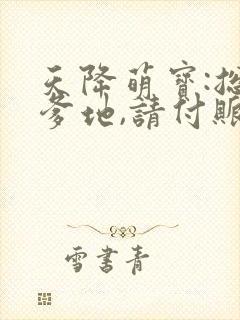 天降萌寶:
爹地,請付賬
雪書青